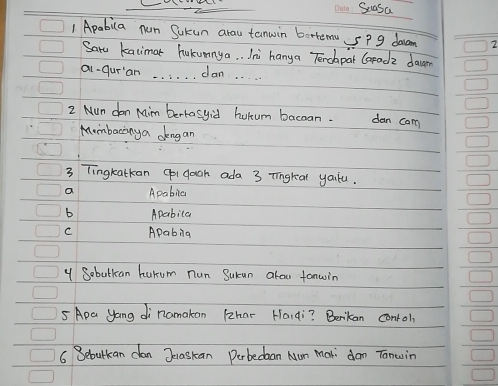 Date: Selasa
1 Apabila nun Sukun atau tanwin bertemu ي و dalam
Satu kalimat hukumnya .. Ini hanya Terdapat Lafadz dalam
al-qur'an ...... dan .....
2 Nun dan Mim bertasyid hukum bacaan - dan cara
Membacanya dengan
3 Tingkatkan qolqolah ada 3 Tingkat yaitu.
a Apabila
b Apabila
c Apabila
4 Sebutkan hukum nun Sukun atau tanwin
5 Apa yang di namakan Izhar Halqi? Berikan Contoh
6 Sebutkan dan Jelaskan Perbedaan Nun Mati dan Tanwin
2